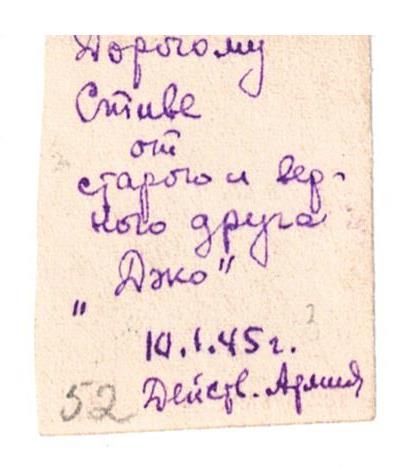 Дорогому
Стиве
от
старого и вер-
ного друга
"Джо"
10.1.45г.
52 Действ. Армия